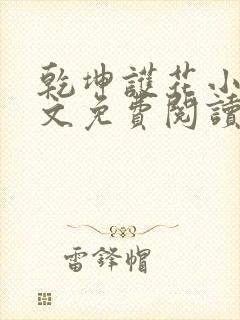 乾坤護花小
文免費閱讀
雷鋒帽